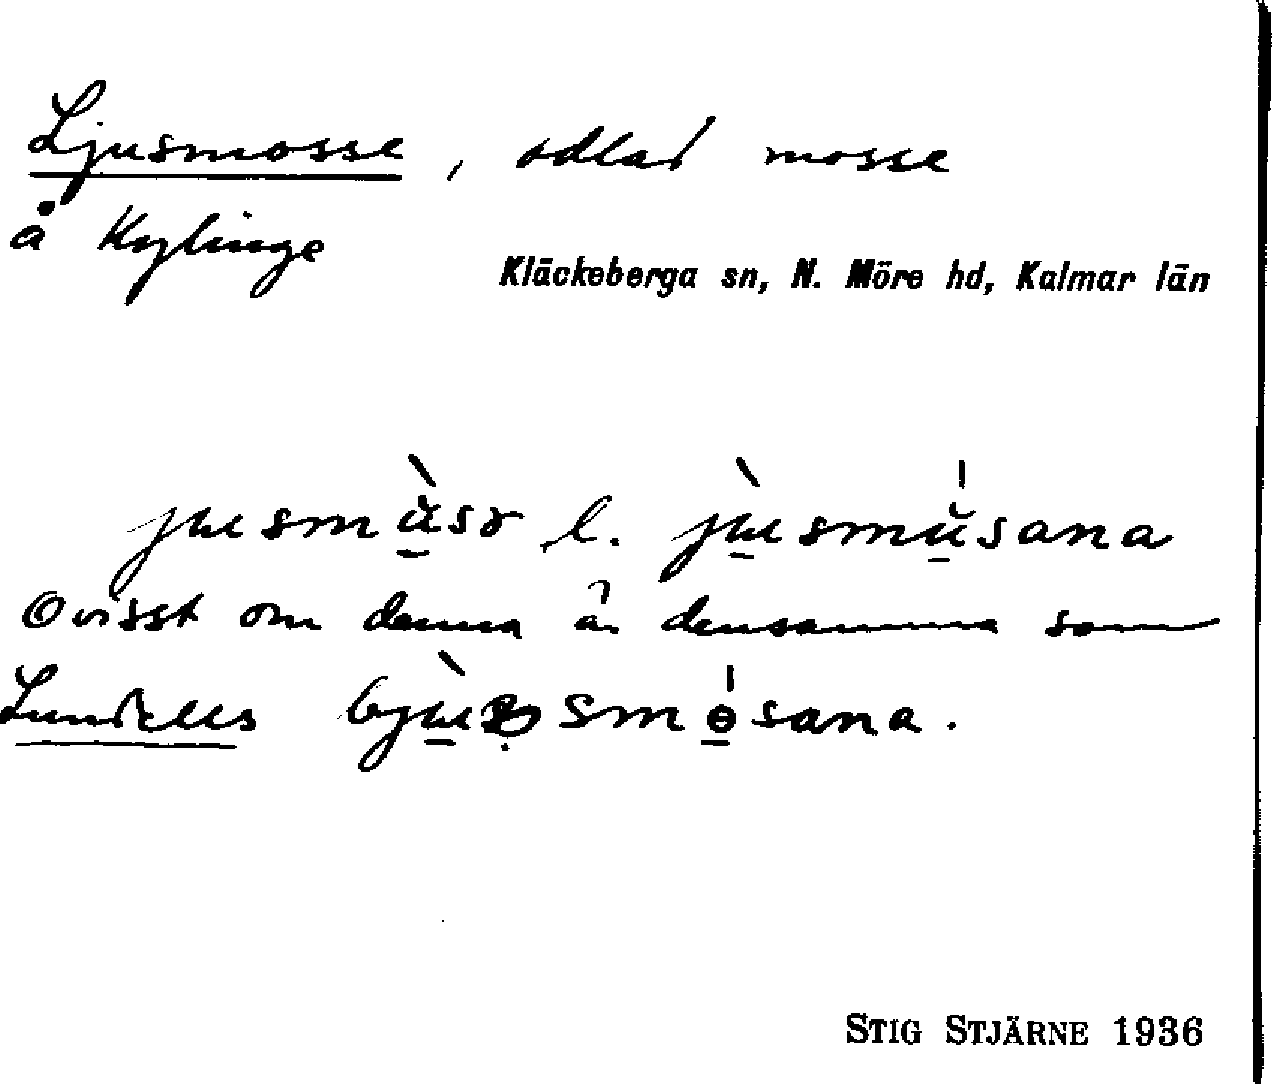 Ljusmosse, odlad mosse
å Kylinge
Kläckeberga sn, N. Möre hd, Kalmar län
jusmùsɤ l. jùsmu̍sana
Ovisst om denna är densamma som
Lundells smɵ̍sana.
STIG STJÄRNE 1936